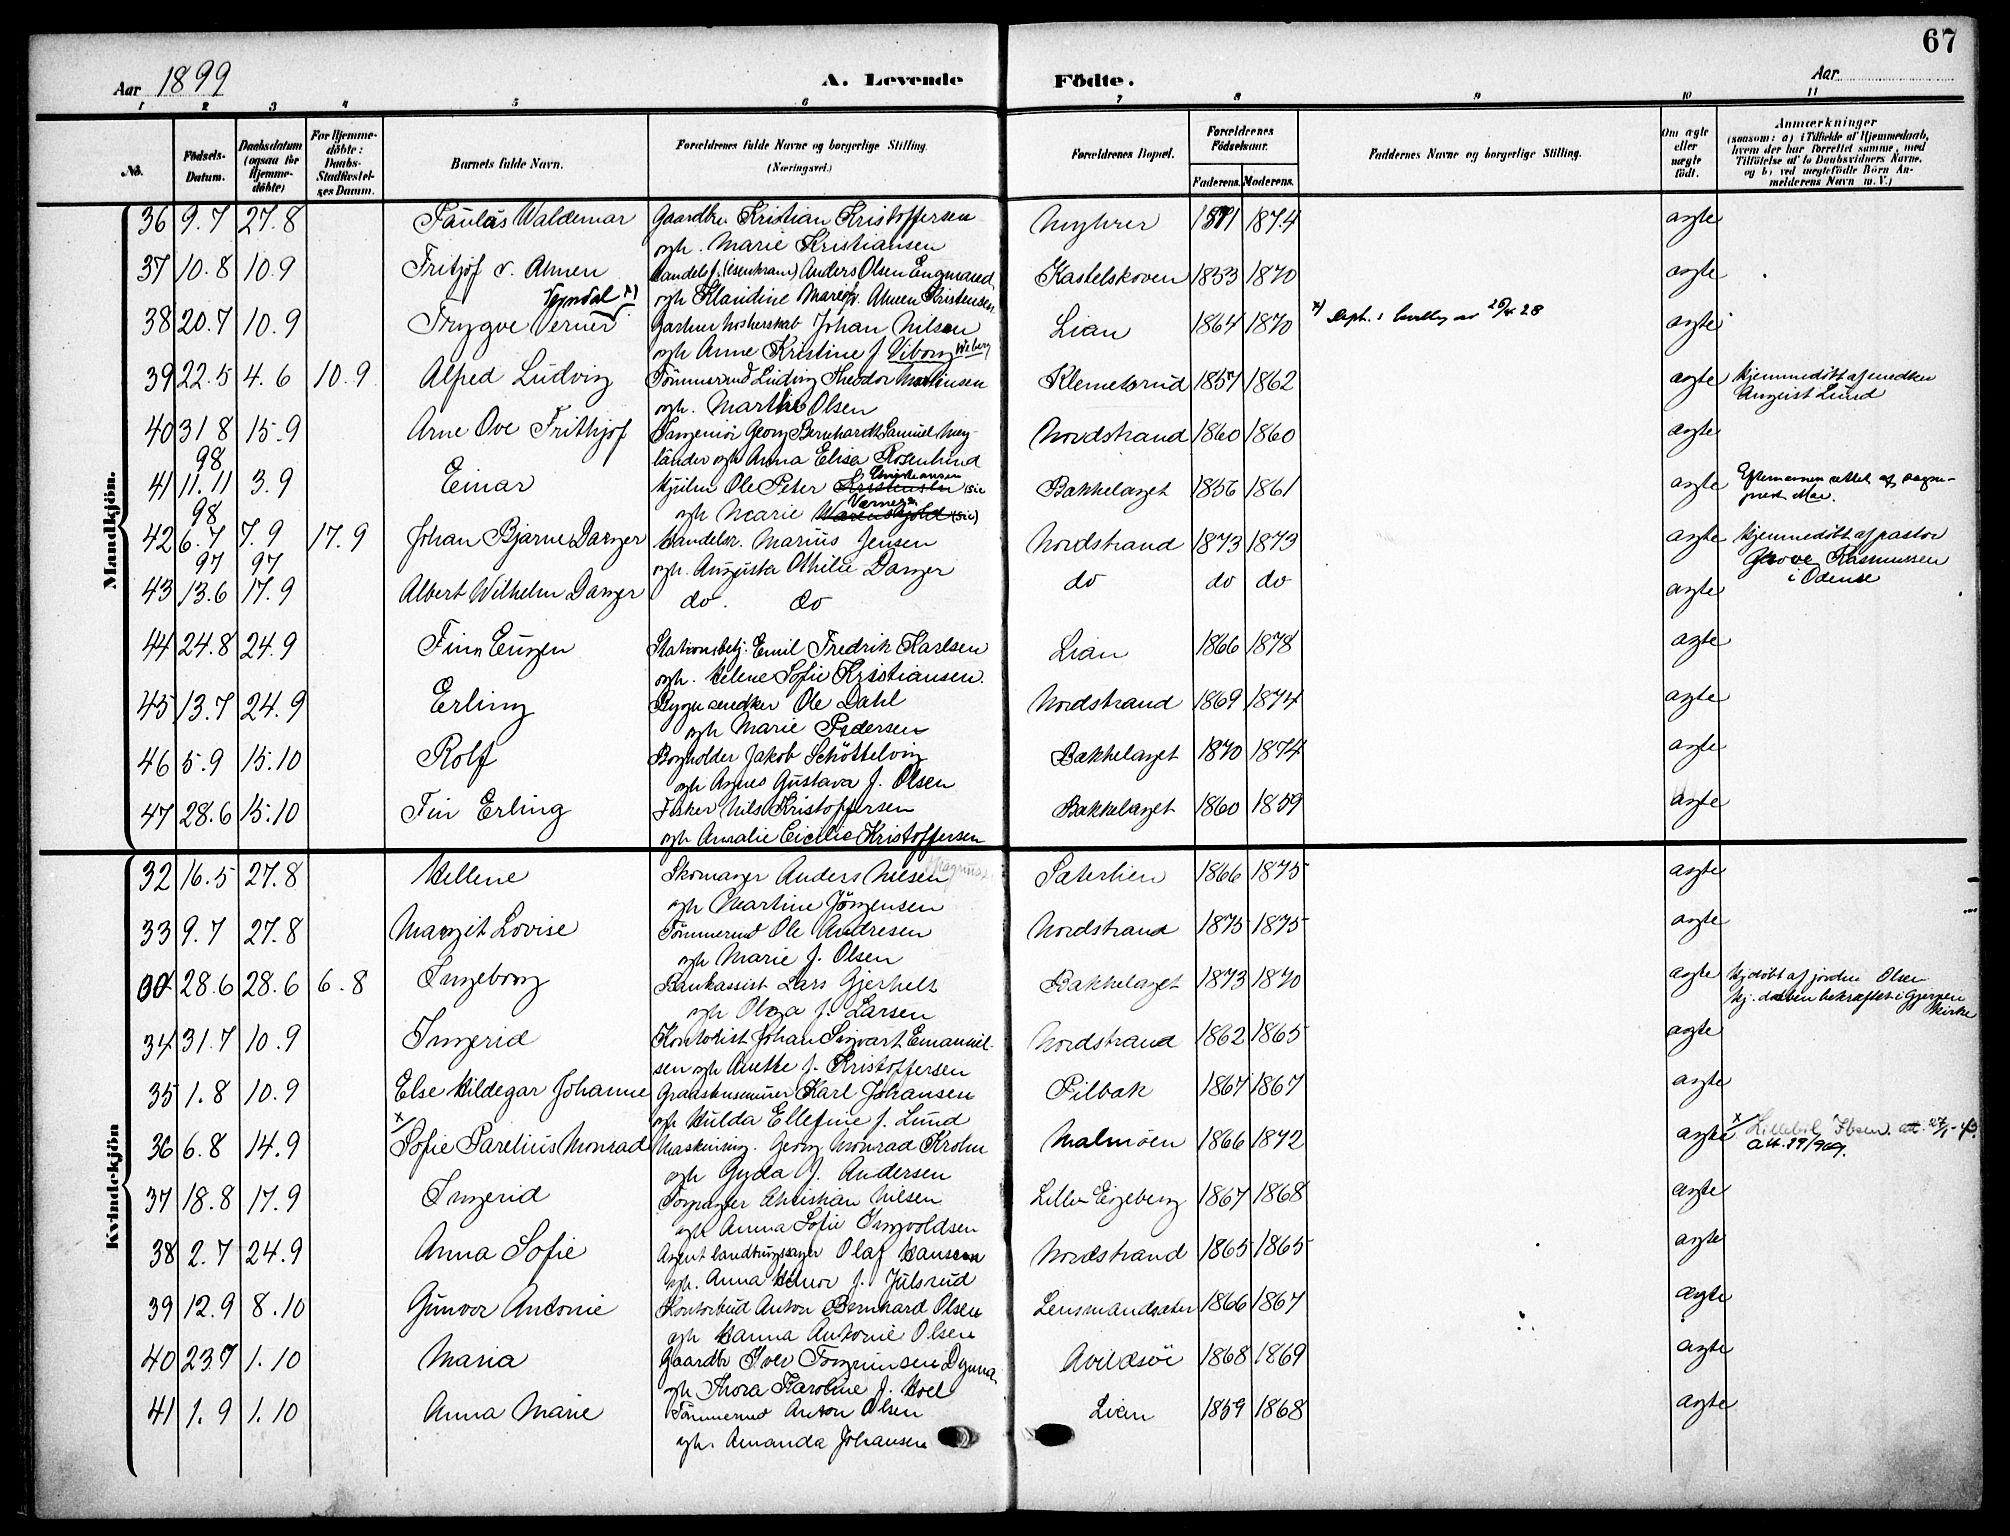 67
Aar 1899
A. Levende Födte.
Aar
1 2 3 4 5 6 7 8 9 10 11
No.
Födsels-Datum.
Daabsdatum (ogsaa for Hjemmedöbte)
For Hjemmedöbte: Daabs-Stadfæstelses Datum.
Barnets fulde Navn.
Forældrenes fulde Navne og borgerlige Stilling. (Næringsvei.)
Forældrenes Bopæl.
Forældrenes Födselsaar.
Faderens. Moderens.
Faddernes Navne og borgerlige Stilling.
Om ægte eller uægte födt.
Anmærkninger
(saasom: a) i Tilfælde af Hjemmedaab, hvem der har forrettet samme, med Tilföielse af to Daabsvidners Navne, og b) ved uægtefödte Börn Anmelderens Navn m. V.)
Mandkjön.
36 9.7 27.8 Paulus Waldemar Gaardbr. Kristian Kristoffersen 1871 1874 ægte
ogh. Marie Kristiansen
37 10.8 10.9 Fritjof v. Ahnen Handelsf. (isenkram) Anders Olsen Kastelskoven 1853 1870 ægte
ogh Klaudine Marie v. Ahnen Kristensen
38 20.7 10.9 Trygve Verner Gartner Johan Nilsen Lian 1864 1870 ægte
ogh Anne Kristine f. Viborg Wiberg
39 22.5 4.6 10.9 Alfred Ludvig Tömmermd Ludvig Theodor Martinsen Klemetsrud 1857 1862 ægte Hjemmedöbt af snedker
ogh. Marthe Olsen August Lund
40 31 8 98 15.9 Arne Ove Frithjof Georg Bernhardt Samuel Nordstrand 1860 1860 ægte
länder ogh Anna Elisa Rosenlund
41 11.11 98 3.9 Einar Hjulm Ole Peter Christiansen Kristensen (sic Bækkelaget 1856 1861 ægte Efternavnen rettet af
ogh Marie Werner (sic)
42 6.7 97 7.9 97 17.9 Johan Bjarne Danger Handelsr. Marius Jensen Nordstrand 1873 1873 ægte Hjemmedöbt af pastor
ogh. Augusta Othilie Danger Rasmussen
43 13.6 17.9 Albert Wilhelm Danger do. do do do do ægte i Odense
44 24.8 24.9 Finn Eugen Stationsbetj. Emil Fredrik Karlsen Lian 1866 1878 ægte
ogh. Helene Sofie Kristiansen.
45 13.7 24.9 Erling Bygn.snedker Ole Dahl Nordstrand 1869 1874 ægte
ogh Marie Pedersen
46 5.9 15.10 Rolf Bogholder Jakob Schöttelvig Bækkelaget 1870 1874 ægte
ogh Agnes Gustava f. Olsen
47 28.6 15.10 Fin Erling Fisker Nils Kristoffersen Bækkelaget 1860 1859 ægte
ogh Amalie Cicilie Kristoffersen
Kvindekjön
32 16.5 27.8 Hellene Skomager Anders Nilsen Sæterlien 1866 1875 ægte
ogh Martine Jörgensen
33 9.7 27.8 Margit Lovise Tömmermd Ole Andresen Nordstrand 1875 1875 ægte
ogh Marie f. Olsen
28.6 28.6 6.8 Ingeborg Bankassist Lars Bækkelaget 1873 1870 ægte Hjdöbt af jordm Olsen
ogh Olga f. Larsen Hj. daaben bekræftet i Gjerpen kirke
34 31.7 10.9 Ingerid Kontorist Johan Sigvart Emanuil- Nordstrand 1862 1865 ægte
sen ogh Anette f. Kristoffersen
35 1.8 10.9 Else Hildegar Johanne Graastensmurer Karl Johansen Pilbæk 1867 1867 ægte
ogh Hulda Ellefine f. Lund
36 6.8 14.9 x/ Sofie Parelius Monrad Maskining. Georg Monrad Krohn Malmöen 1866 1872 ægte x/ Lillebil Ibsen.
ogh Gyda f. Andersen
37 18.8 17.9 Ingerid Christian Nilsen Lille Ekeberg 1867 1868 ægte
ogh Anna Sofie Ingvoldsen
38 2.7 24.9 Anna Sofie Agent Olaf Hansen Nordstrand 1865 1865 ægte
ogh. Anna f. Julsrud
39 12.9 8.10 Gunvor Antonie Kontorbud Anton Bernhard Olsen Lensmandsæter 1866 1867 ægte
ogh Hanna Antonie Olsen
40 23.7 1.10 Maria Gaardbr Iver 1868 1869 ægte
ogh Thora Karoline f. Hoel
41 1.9 1.10 Anna Marie Tömmermd Anton Olsen Lian 1859 1868 ægte
ogh. Amanda Johansen